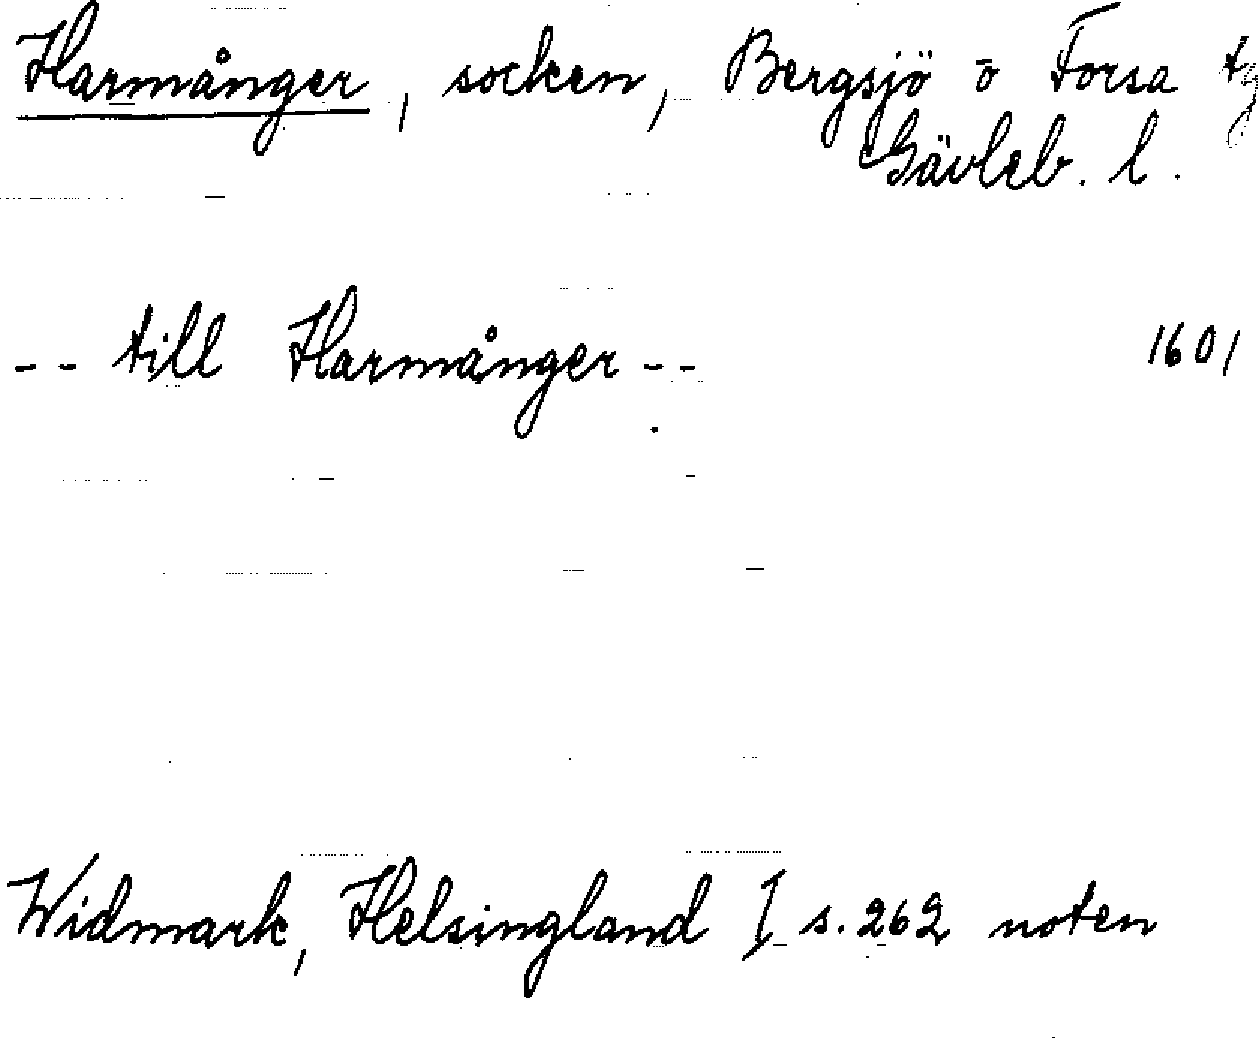 Harmånger, socken, Bergsjö o Forsa tg
Gävleb. l.
-- till Harmånger -- 1601
Widmark, Helsingland I s. 262 noten